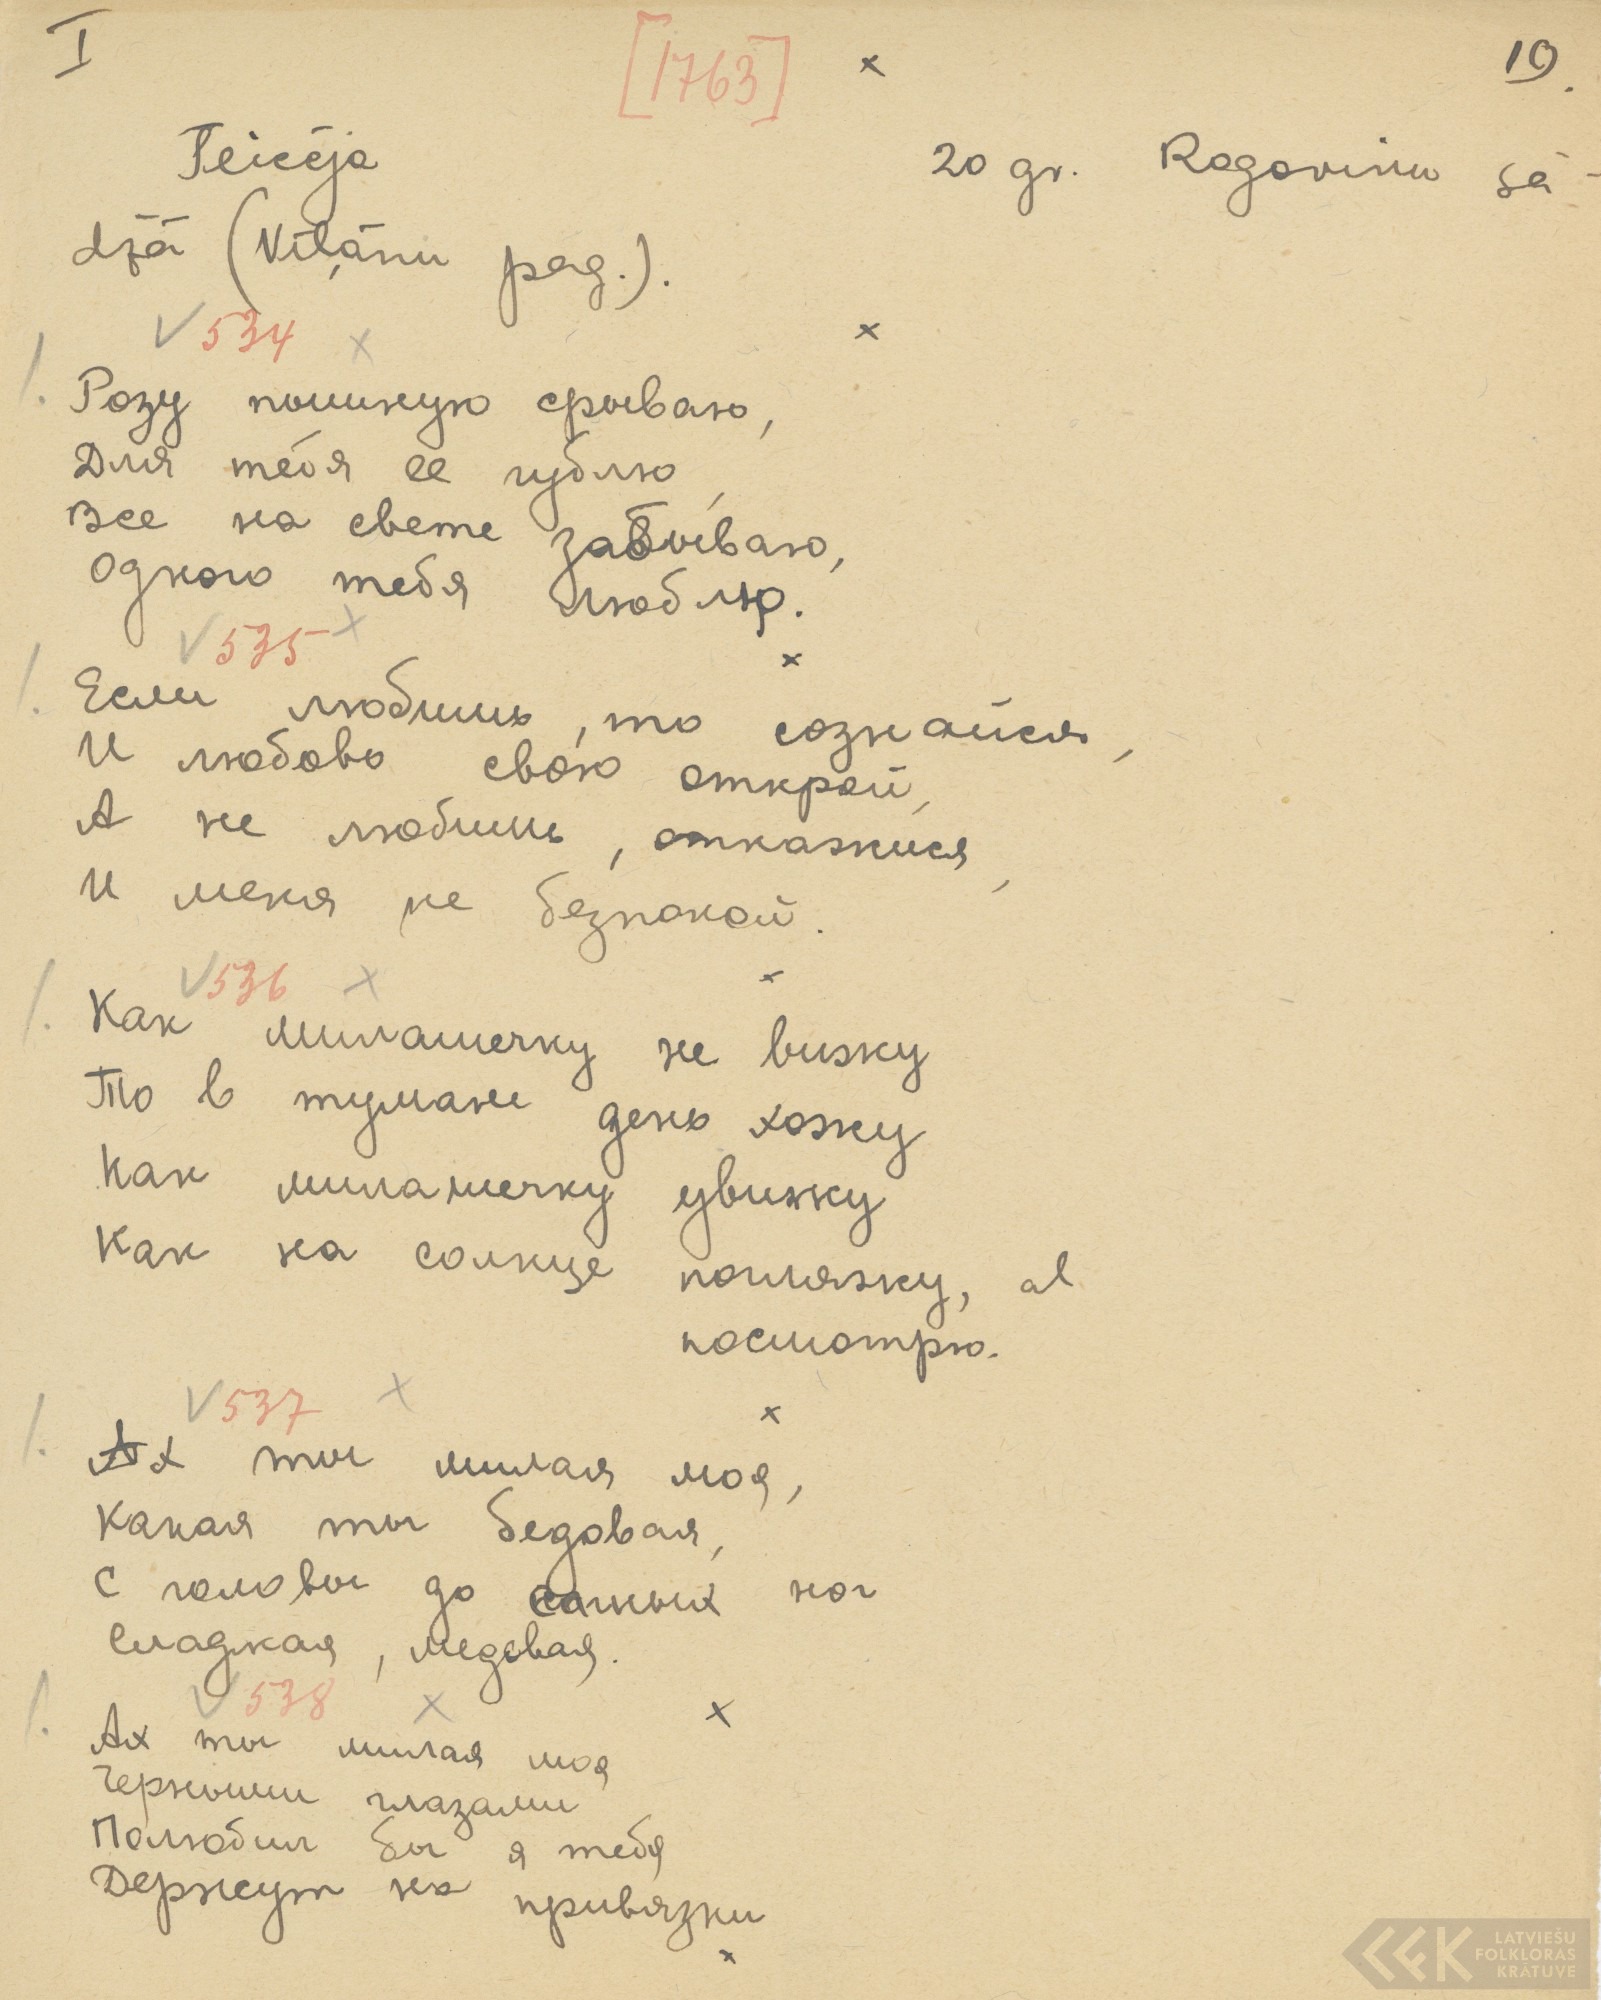 I [1763] x 19.
Teicēja 20 gr. Rogoviņu sā-
džā (Viļānu pag.).
V 534 x x
1. Розу пышную срываю,
Для тебя ее гублю,
Все на свете забываю,
Одного тебя люблю.
V 535 x x
1. Если любишь, то сознайся,
И любовь свою открой,
А не любишь, откажися,
И меня не безпокой.
V 536 x x
1. Как милашечку не вижу
То в тумане день хожу
Как милашечку увижу
Как на солнце погляжу, al
посмотрю.
V 537 x x
1. Ах ты милая моя,
Какая ты бедовая,
С головы до самых ног
Сладкая, медовая.
V 538 x x
1. Ах ты милая моя
Черными глазами
Полюбил бы я тебя
Держут на привязки
x
LATVIEŠU
FOLKLORAS
KRĀTUVE